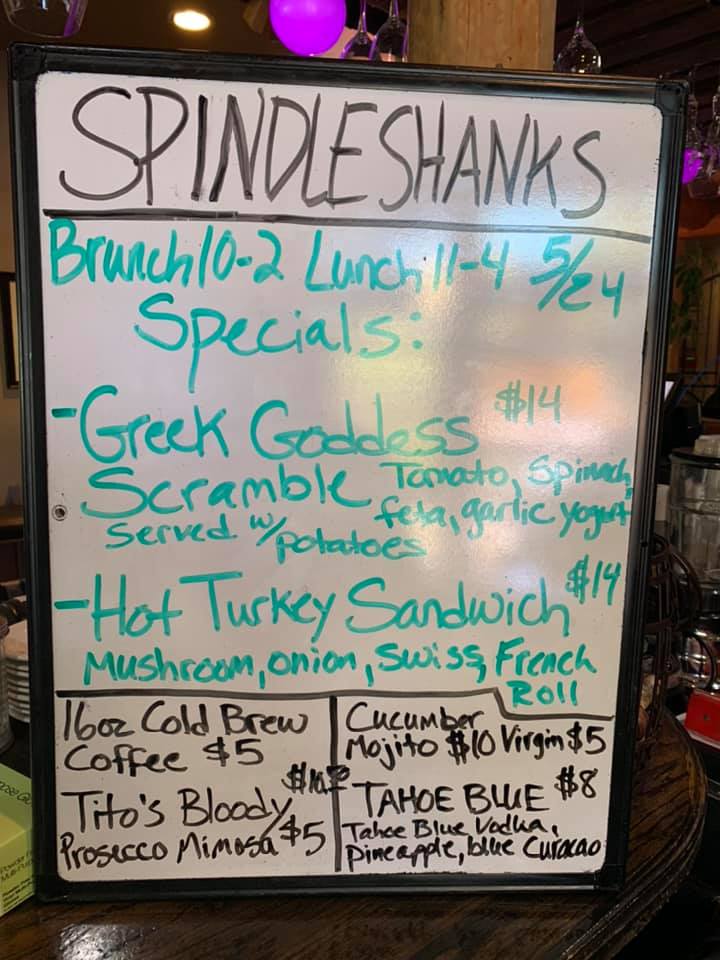 SPINDLESHANKS
Brunch 10-2 Lunch 11-4 5/24
Specials:
-Greek Goddess $14
Scramble Tomato, Spinach,
feta, garlic yogurt
Served w/ potatoes
-Hot Turkey Sandwich $14
Mushroom, onion, Swiss, French
Roll
16oz Cold Brew
Coffee $5
Tito's Bloody
Prosecco Mimosa $5
Cucumber
Mojito $10 Virgin $5
TAHOE BLUE $8
Tahoe Blue Vodka,
pineapple, blue Curacao